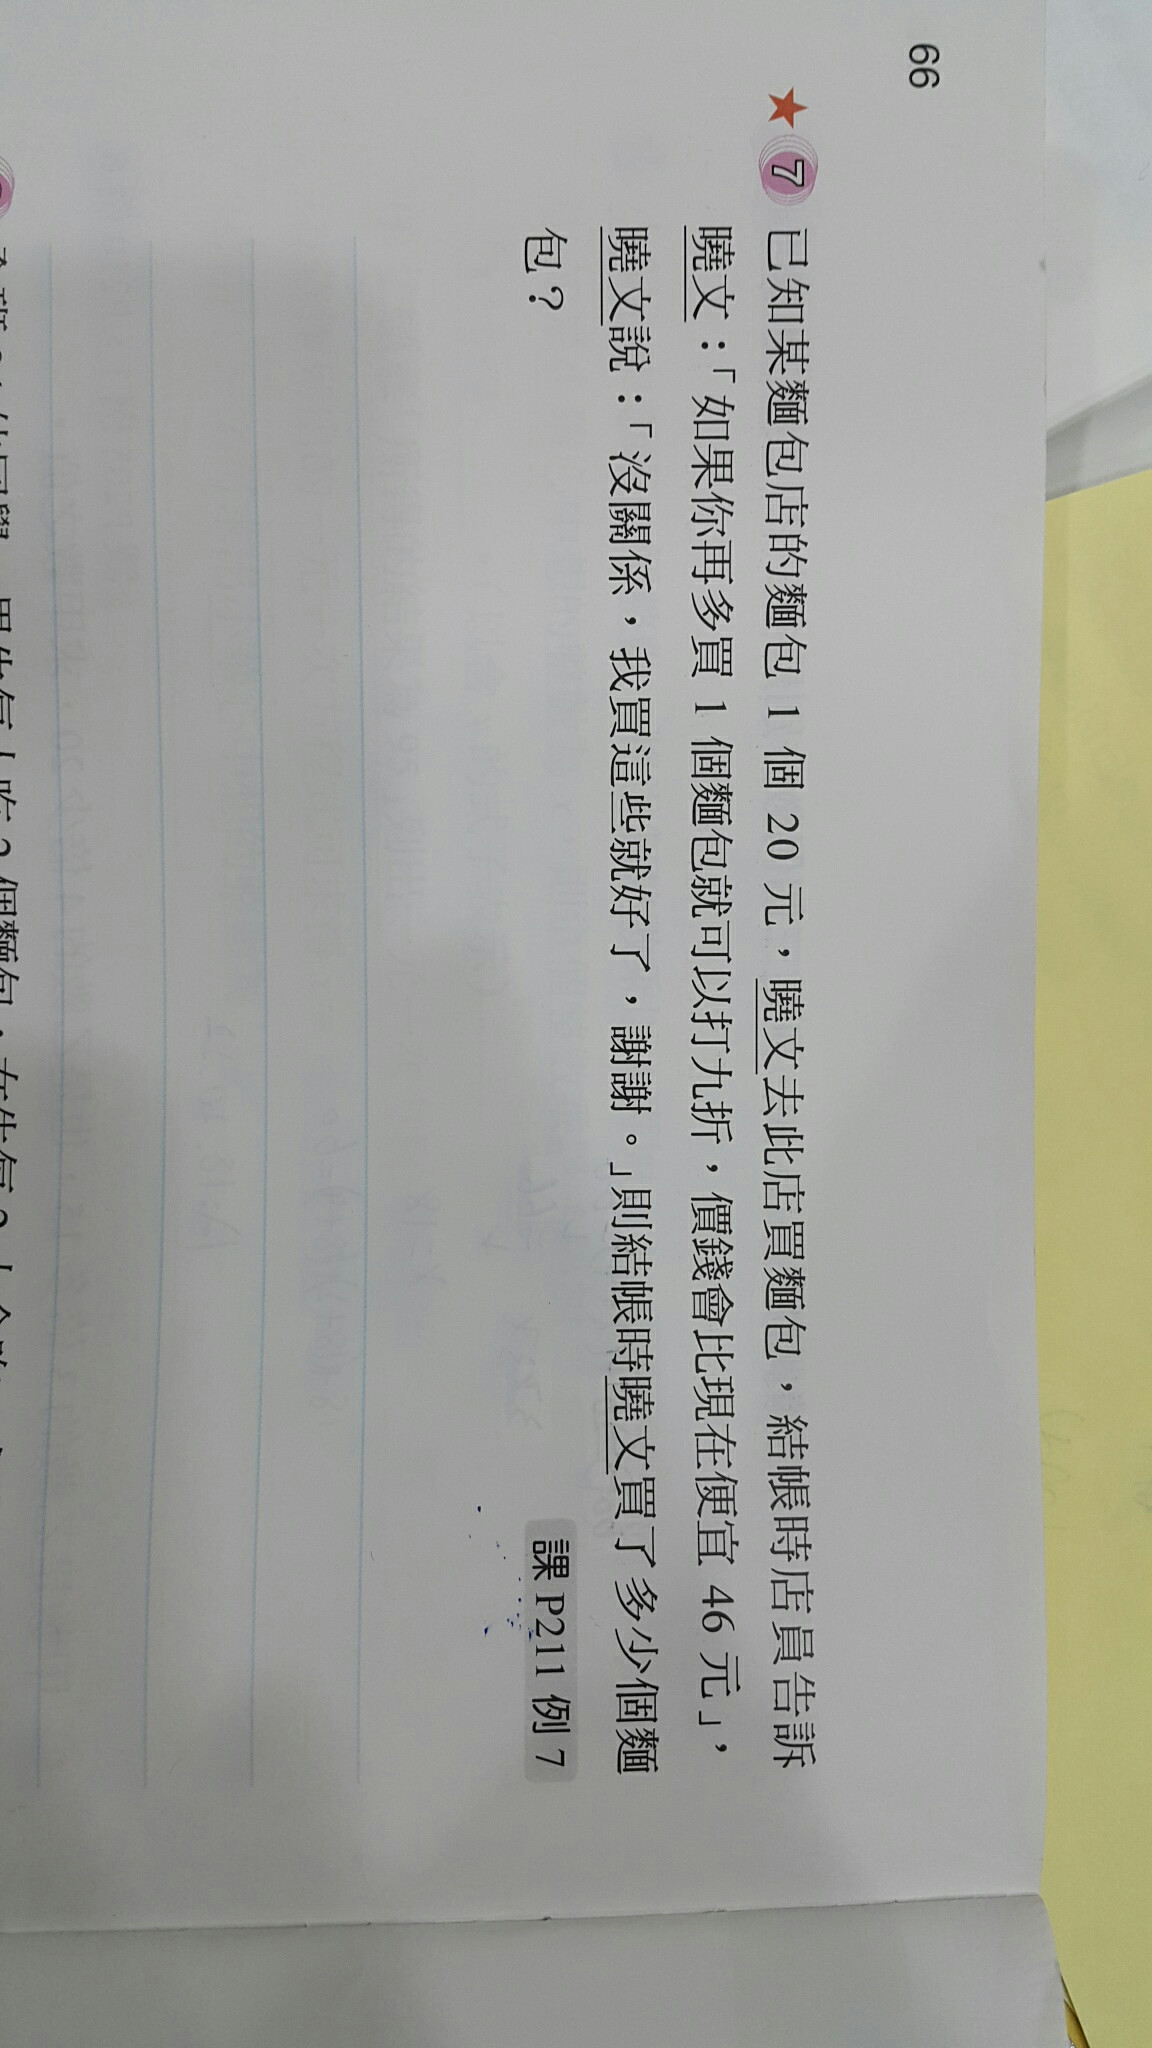 66
★ 7 已知某麵包店的麵包 1 個 20 元，曉文去此店買麵包，結帳時店員告訴
曉文：「如果你再多買 1 個麵包就可以打九折，價錢會比現在便宜 46 元」，
曉文說：「沒關係，我買這些就好了，謝謝。」則結帳時曉文買了多少個麵
包？
課 P211 例 7